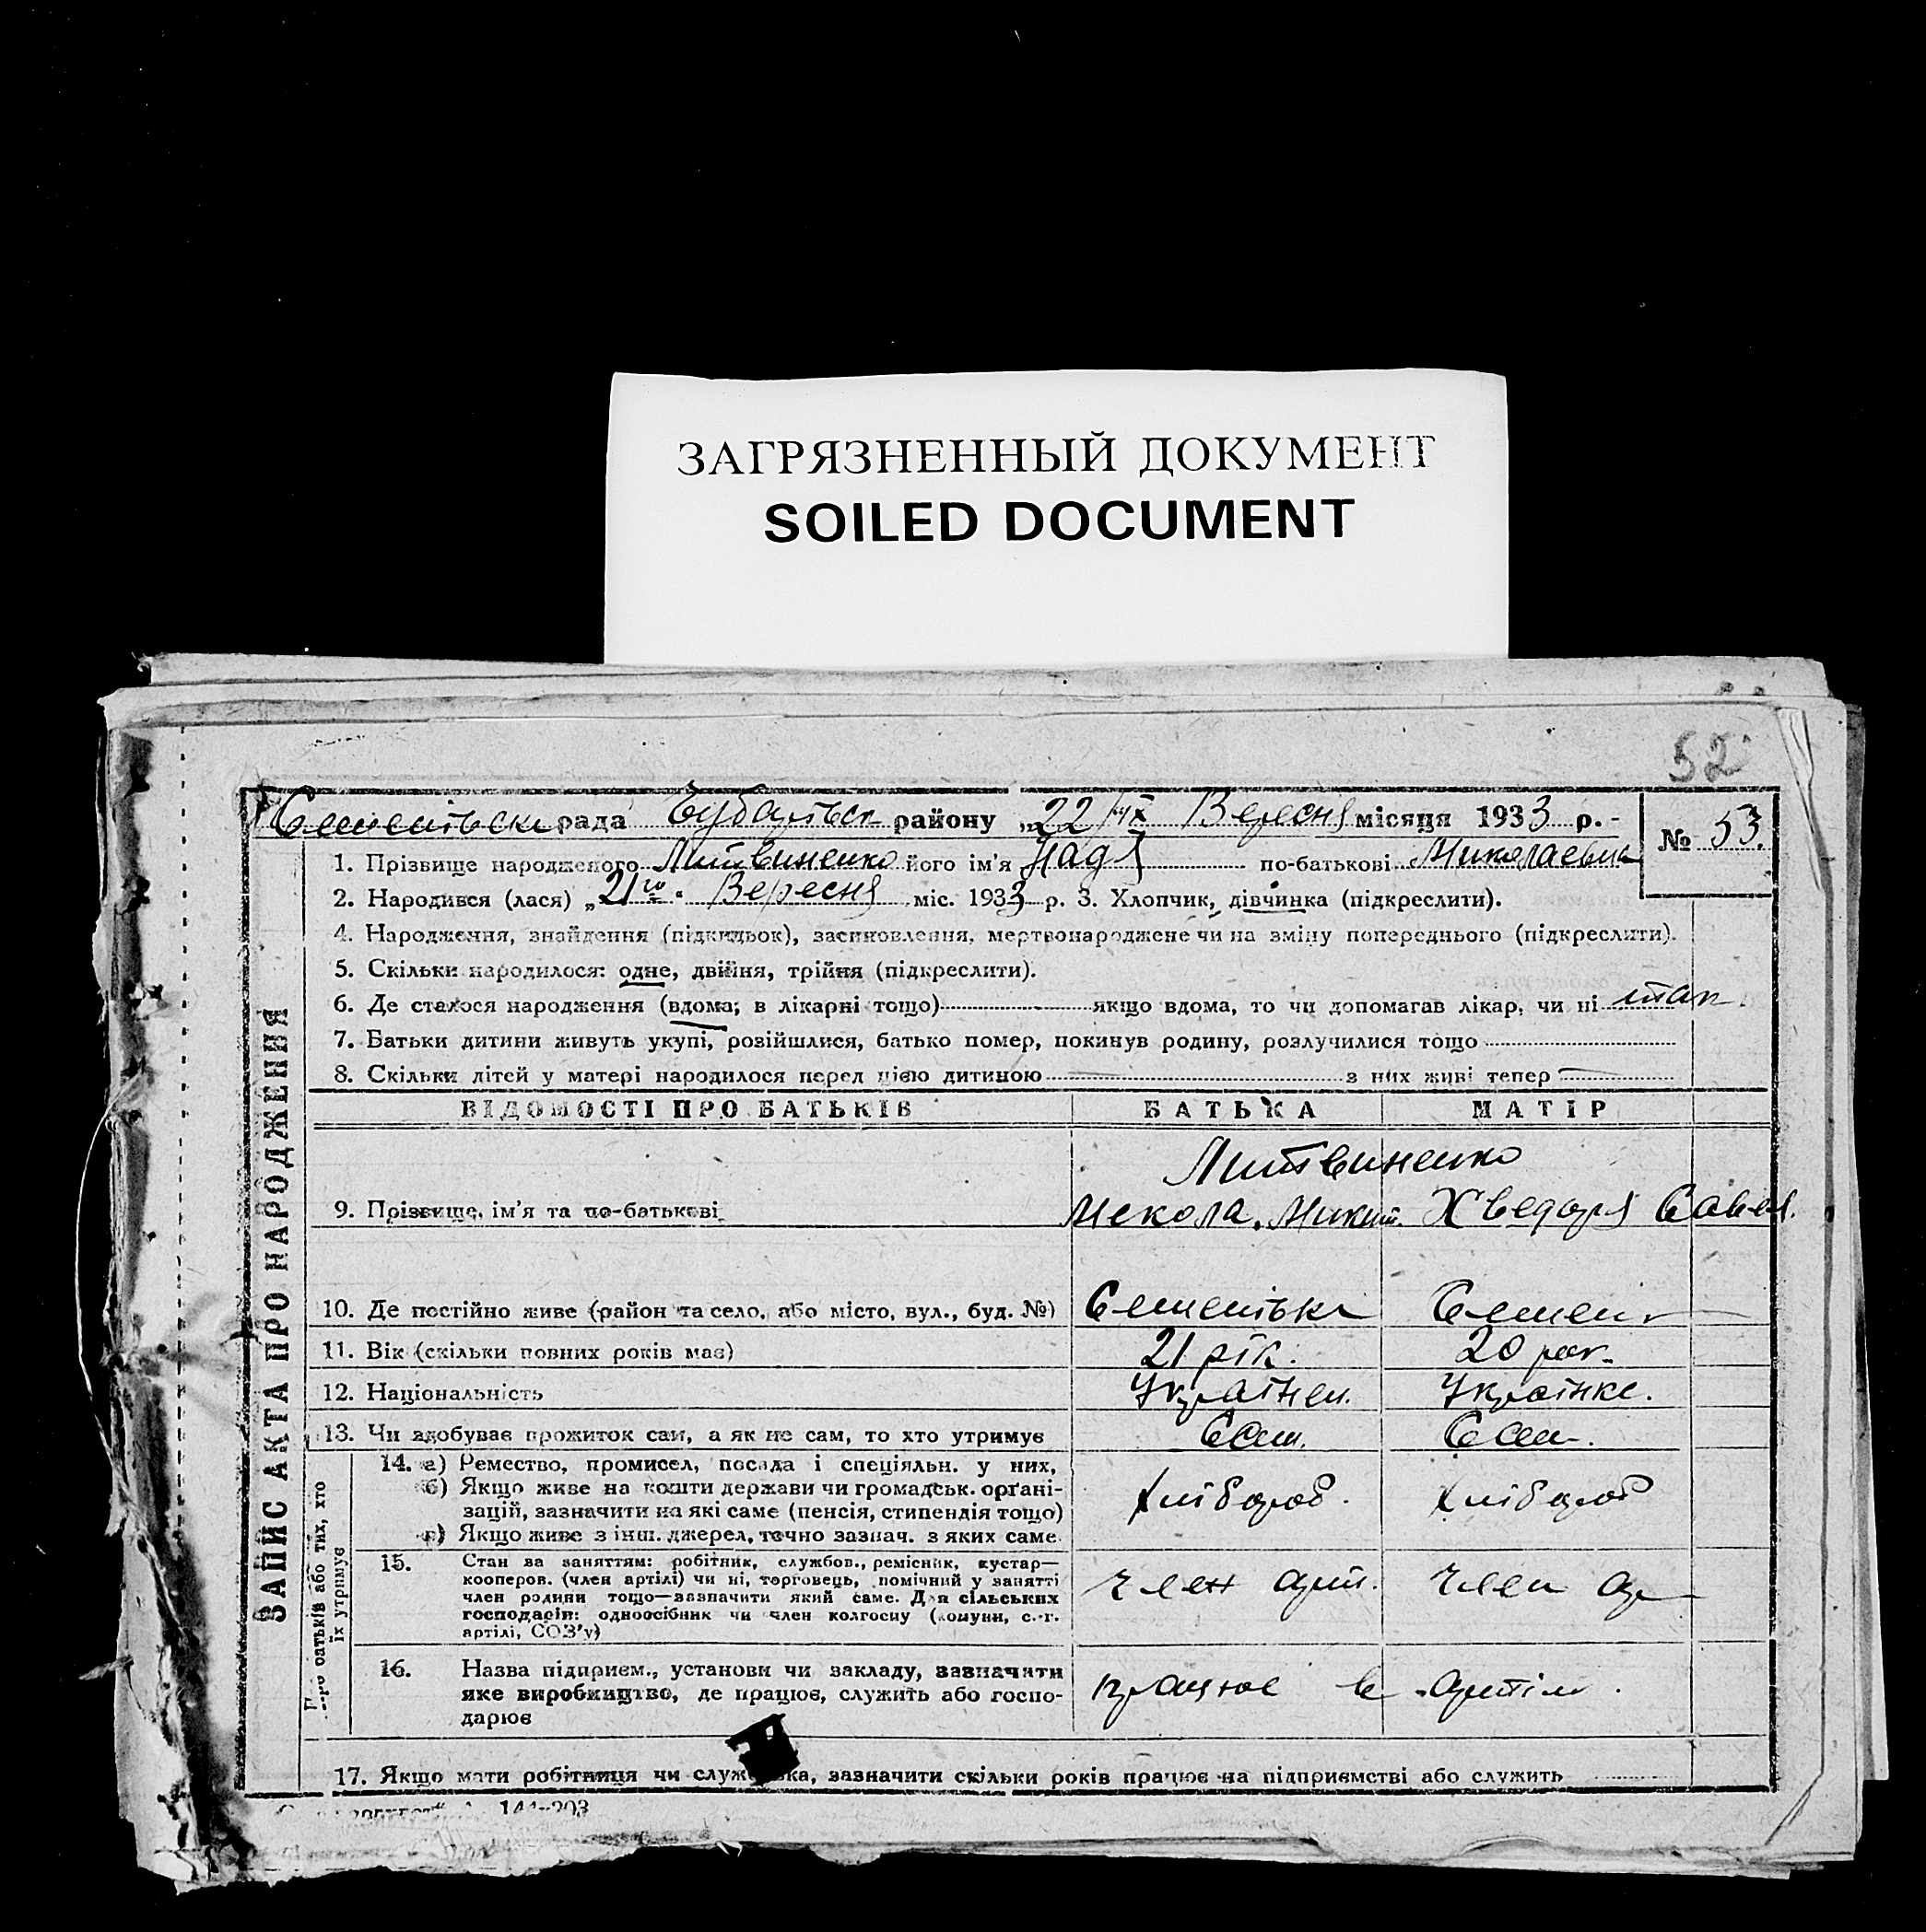 ЗАГРЯЗНЕННЫЙ ДОКУМЕНТ
SOILED DOCUMENT
52
Семенівська рада Чубарівськ району „22/IX Вересня місяця 1933 р. -
№ 53.
1. Прізвище народженого Литвиненко його ім'я Надя по-батькові Миколаевна
2. Народився (лася) „21го" Вересня міс. 1933 р. 3. Хлопчик, дівчинка (підкреслити).
4. Народження, знайдення (підкидьок), засиновлення, мертвонароджене чи на зміну попереднього (підкреслити).
5. Скільки народилося: одне, двійня, трійня (підкреслити).
6. Де сталося народження (вдома; в лікарні тощо) якщо вдома, то чи допомагав лікар, чи ні так.
7. Батьки дитини живуть укупі, розійшлися, батько помер, покинув родину, розлучилися тощо
8. Скільки дітей у матері народилося перед цією дитиною з них живі тепер
ЗАПИС АКТА ПРО НАРОДЖЕННЯ
ВІДОМОСТІ ПРО БАТЬКІВ БАТЬКА МАТІР
Литвиненко
9. Прізвище, ім'я та по-батькові Микола. Микит. Хведоря Савел.
10. Де постійно живе (район та село, або місто, вул., буд. №) Семенівка Семен
11. Вік (скільки повних років має) 21 рік. 20 рок.
12. Національність Українец. Українка.
13. Чи здобуває прожиток сам, а як не сам, то хто утримує Сам. Сам.
батьків або тих, хто
їх утримує
14. а) Ремество, промисел, посада і спеціяльн. у них,
б) Якщо живе на кошти держави чи громадськ. орґані-
зацій, зазначити на які саме (пенсія, стипендія тощо) Хлібороб. Хлібороб
в) Якщо живе з інш. джерел, точно зазнач. з яких саме.
15. Стан за заняттям: робітник, службов., ремісник, кустар—
кооперов. (член артілі) чи ні, торговець, помічний у занятті
член родини тощо—зазначити який саме. Для сільських
господарів: одноосібник чи член колгоспу (комуни, с.-г.
артілі, СОЗ'у)
Член арт. Член ар
16. Назва підприєм., установи чи закладу, зазначити
яке виробництво, де працює, служить або госпо-
дарює
працює в артіли.
17. Якщо мати робітниця чи служ ка, зазначити скільки років працює на підприємстві або служить
144-203